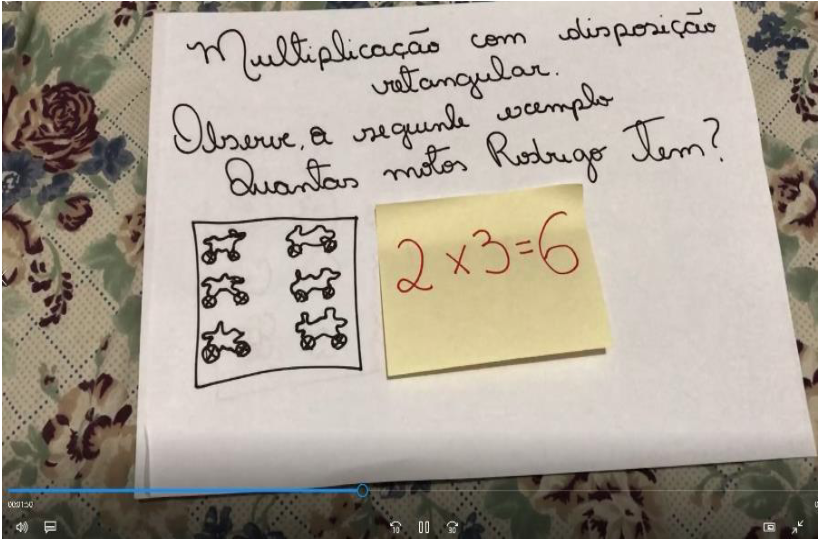 Multiplicação com disposição
retangular.
Observe, a seguinte exemplo
Quantas motos Rodrigo Tem?
2 x 3 = 6
00:01:50
10
30